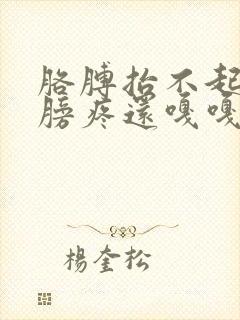 胳膊抬不起
膀疼還嘎嘎
楊奎松